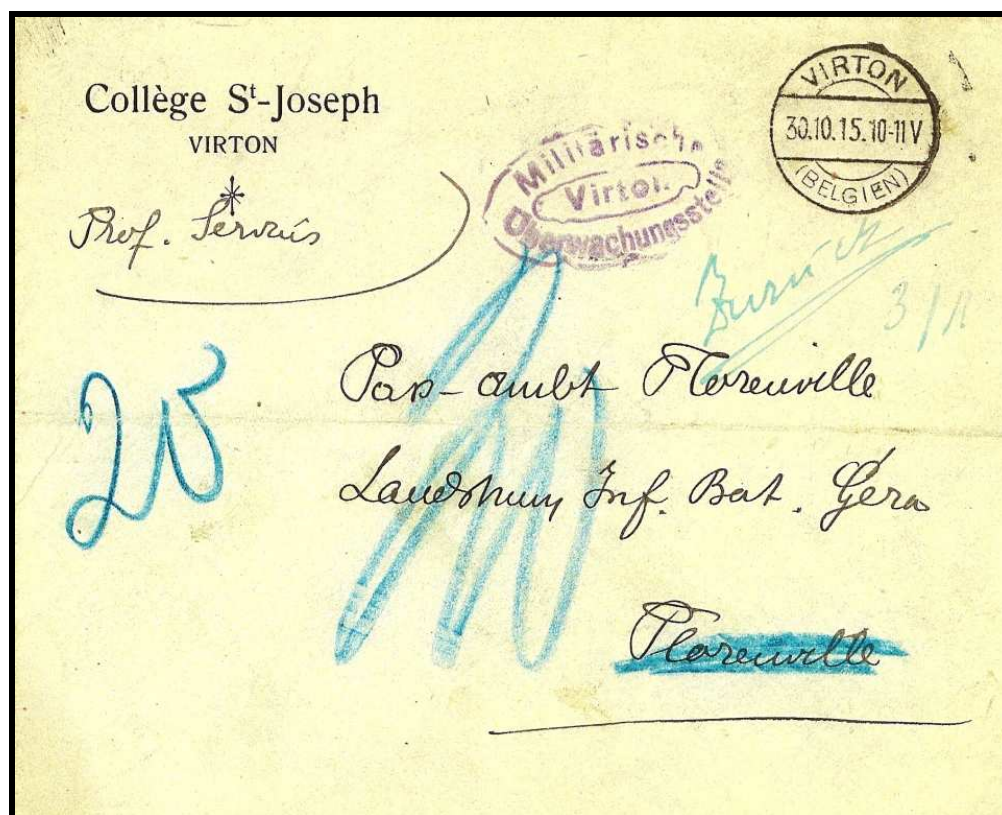 Collège St-Joseph
VIRTON
Prof. Servais
Militärische
Virton
Überwachungsstelle
VIRTON
30.10.15.10-11V
(BELGIEN)
Zurück
3/11
25
10
Pass-ambt Florenville
Landsturm Inf. Bat. Géra
Florenville